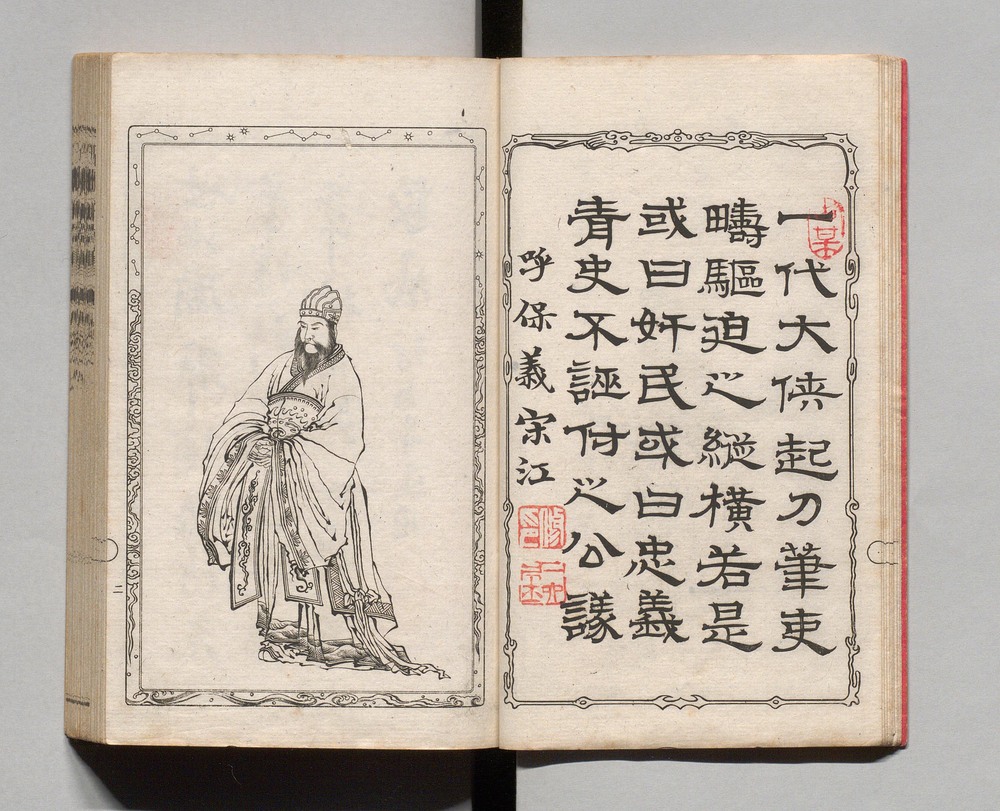 一代大俠起刀筆吏
疇驅迫之縱橫若是
或曰奸民或曰忠義
青史不誣付之公議
呼保義宋江
二